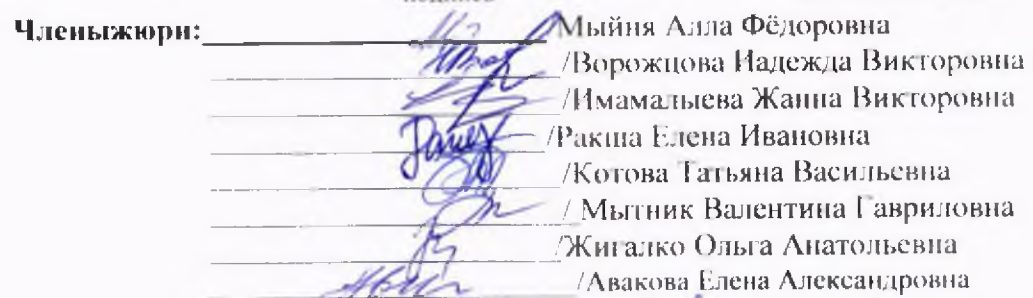 Членыжюри: Мыйня Алла Фёдоровна
/Ворожцова Надежда Викторовна
/Имамалыева Жанна Викторовна
/Ракша Елена Ивановна
/Котова Татьяна Васильевна
/ Мытник Валентина Гавриловна
/Жигалко Ольга Анатольевна
/Авакова Елена Александровна